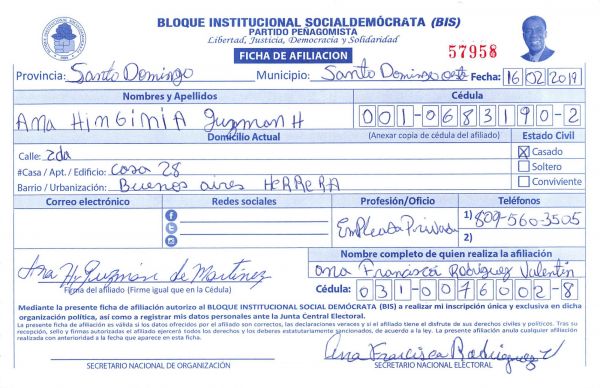 BLOQUE INSTITUCIONAL SOCIALDEMÓCRATA (BIS)
PARTIDO PEÑAGOMISTA
Libertad, Justicia, Democracia y Solidaridad
FICHA DE AFILIACION
57958
Provincia: Santo Domingo Municipio: Santo Domingo oeste Fecha: 16/02/2019
Nombres y Apellidos Cédula
Ana Hinginia Guzman H 001-0683190-2
Domicilio Actual (Anexar copia de cédula del afiliado) Estado Civil
Calle: 2da X Casado
#Casa / Apt. / Edificio: casa 28 Soltero
Barrio / Urbanización: Buenos aires Herrera Conviviente
Correo electrónico Redes sociales Profesión/Oficio Teléfonos
Empleada Privada 1) 809-560-3505
2)
Nombre completo de quien realiza la afiliación
Ana Hg Guzmán de Martínez Ana Francisca Rodriguez Valentin
Firma del afiliado (Firme igual que en la Cédula) Cédula: 031-0076002-8
Mediante la presente ficha de afiliación autorizo al BLOQUE INSTITUCIONAL SOCIAL DEMÓCRATA (BIS) a realizar mi inscripción única y exclusiva en dicha
organización política, así como a registrar mis datos personales ante la Junta Central Electoral.
La presente ficha de afiliación es válida si los datos ofrecidos por el afiliado son correctos, las declaraciones veraces y si el afiliado tiene el disfrute de sus derechos civiles y políticos. Tras su
recepción, sello y firmas autorizadas el afiliado ejercerá todos los derechos y los deberes estatutariamente sancionados, de acuerdo a la ley. La presente afiliación anula cualquier afiliación
realizada con anterioridad a la fecha que aparece en esta ficha.
Ana Francisca Rodriguez V
SECRETARIO NACIONAL DE ORGANIZACIÓN SECRETARIO NACIONAL ELECTORAL